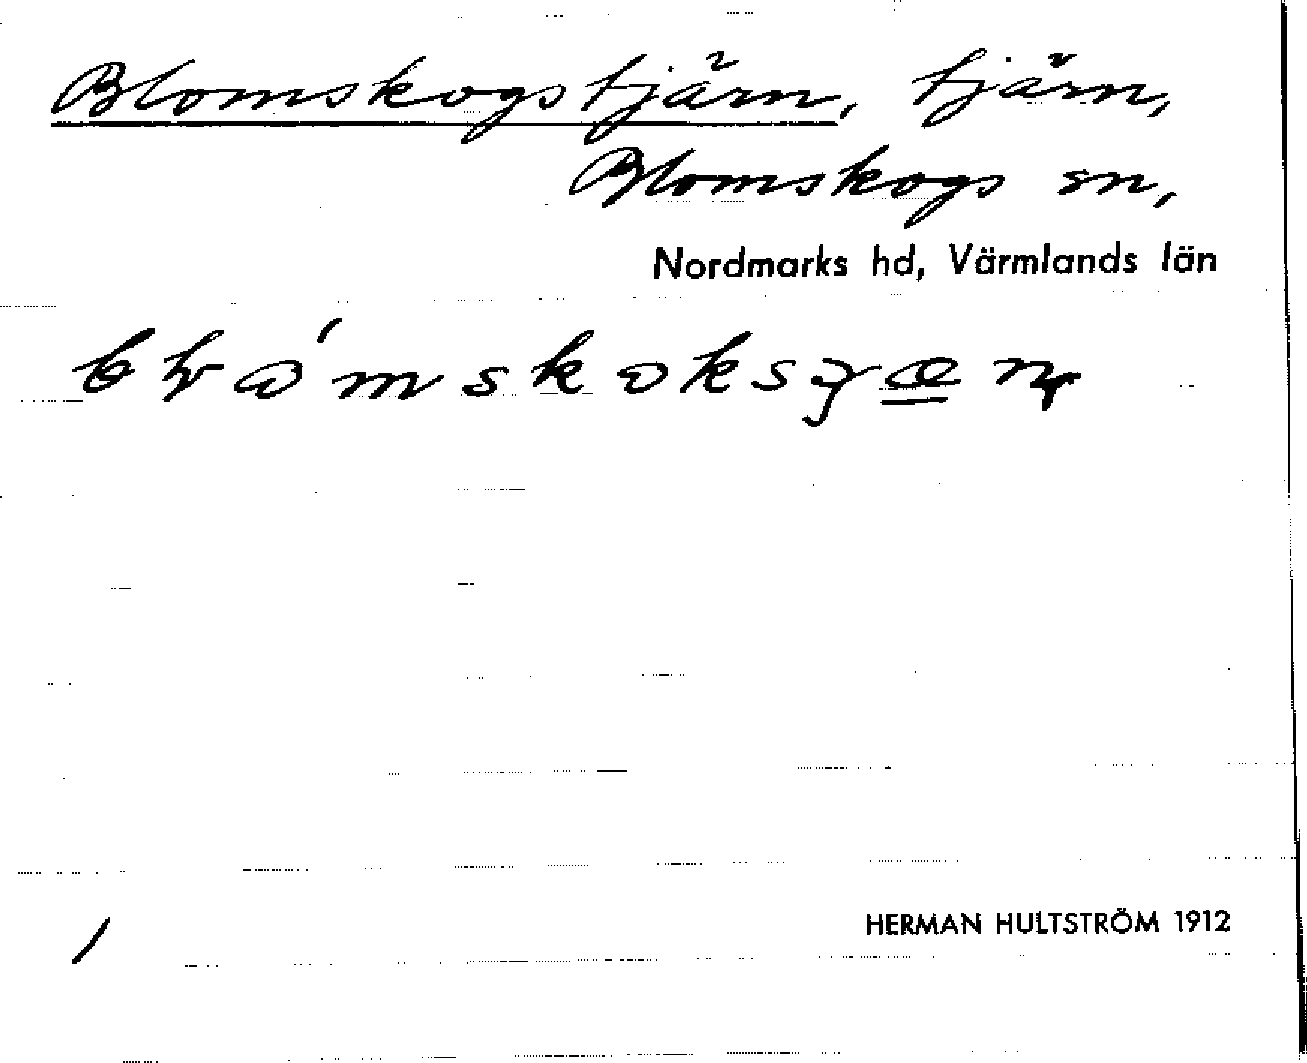 Blomskogstjärn, tjärn,
Blomskogs sn,
Nordmarks hd, Värmlands län
/
HERMAN HULTSTRÖM 1912